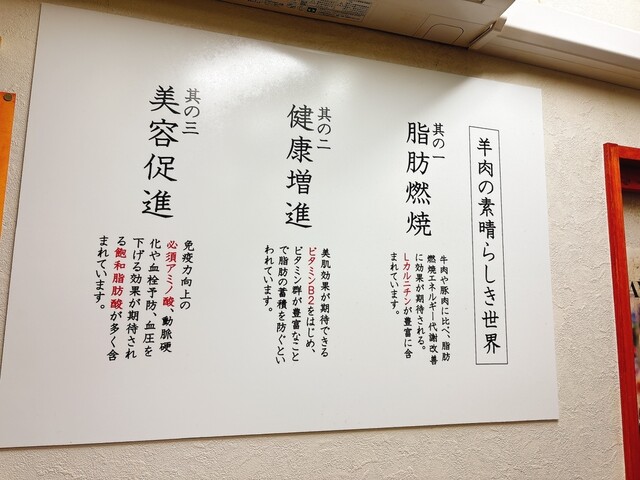 羊肉の素晴らしき世界
其の一
脂肪燃焼
牛肉や豚肉に比べ、脂肪
燃焼エネルギー代謝改善
に効果が期待される。
Lカルニチンが豊富に含
まれています。
其の二
健康増進
美肌効果が期待できる
ビタミンB2をはじめ、
ビタミン群が豊富なこと
で脂肪の蓄積を防ぐとい
われています。
其の三
美容促進
免疫力向上の
必須アミノ酸、動脈硬
化や血栓予防、血圧を
下げる効果が期待され
る飽和脂肪酸が多く含
まれています。